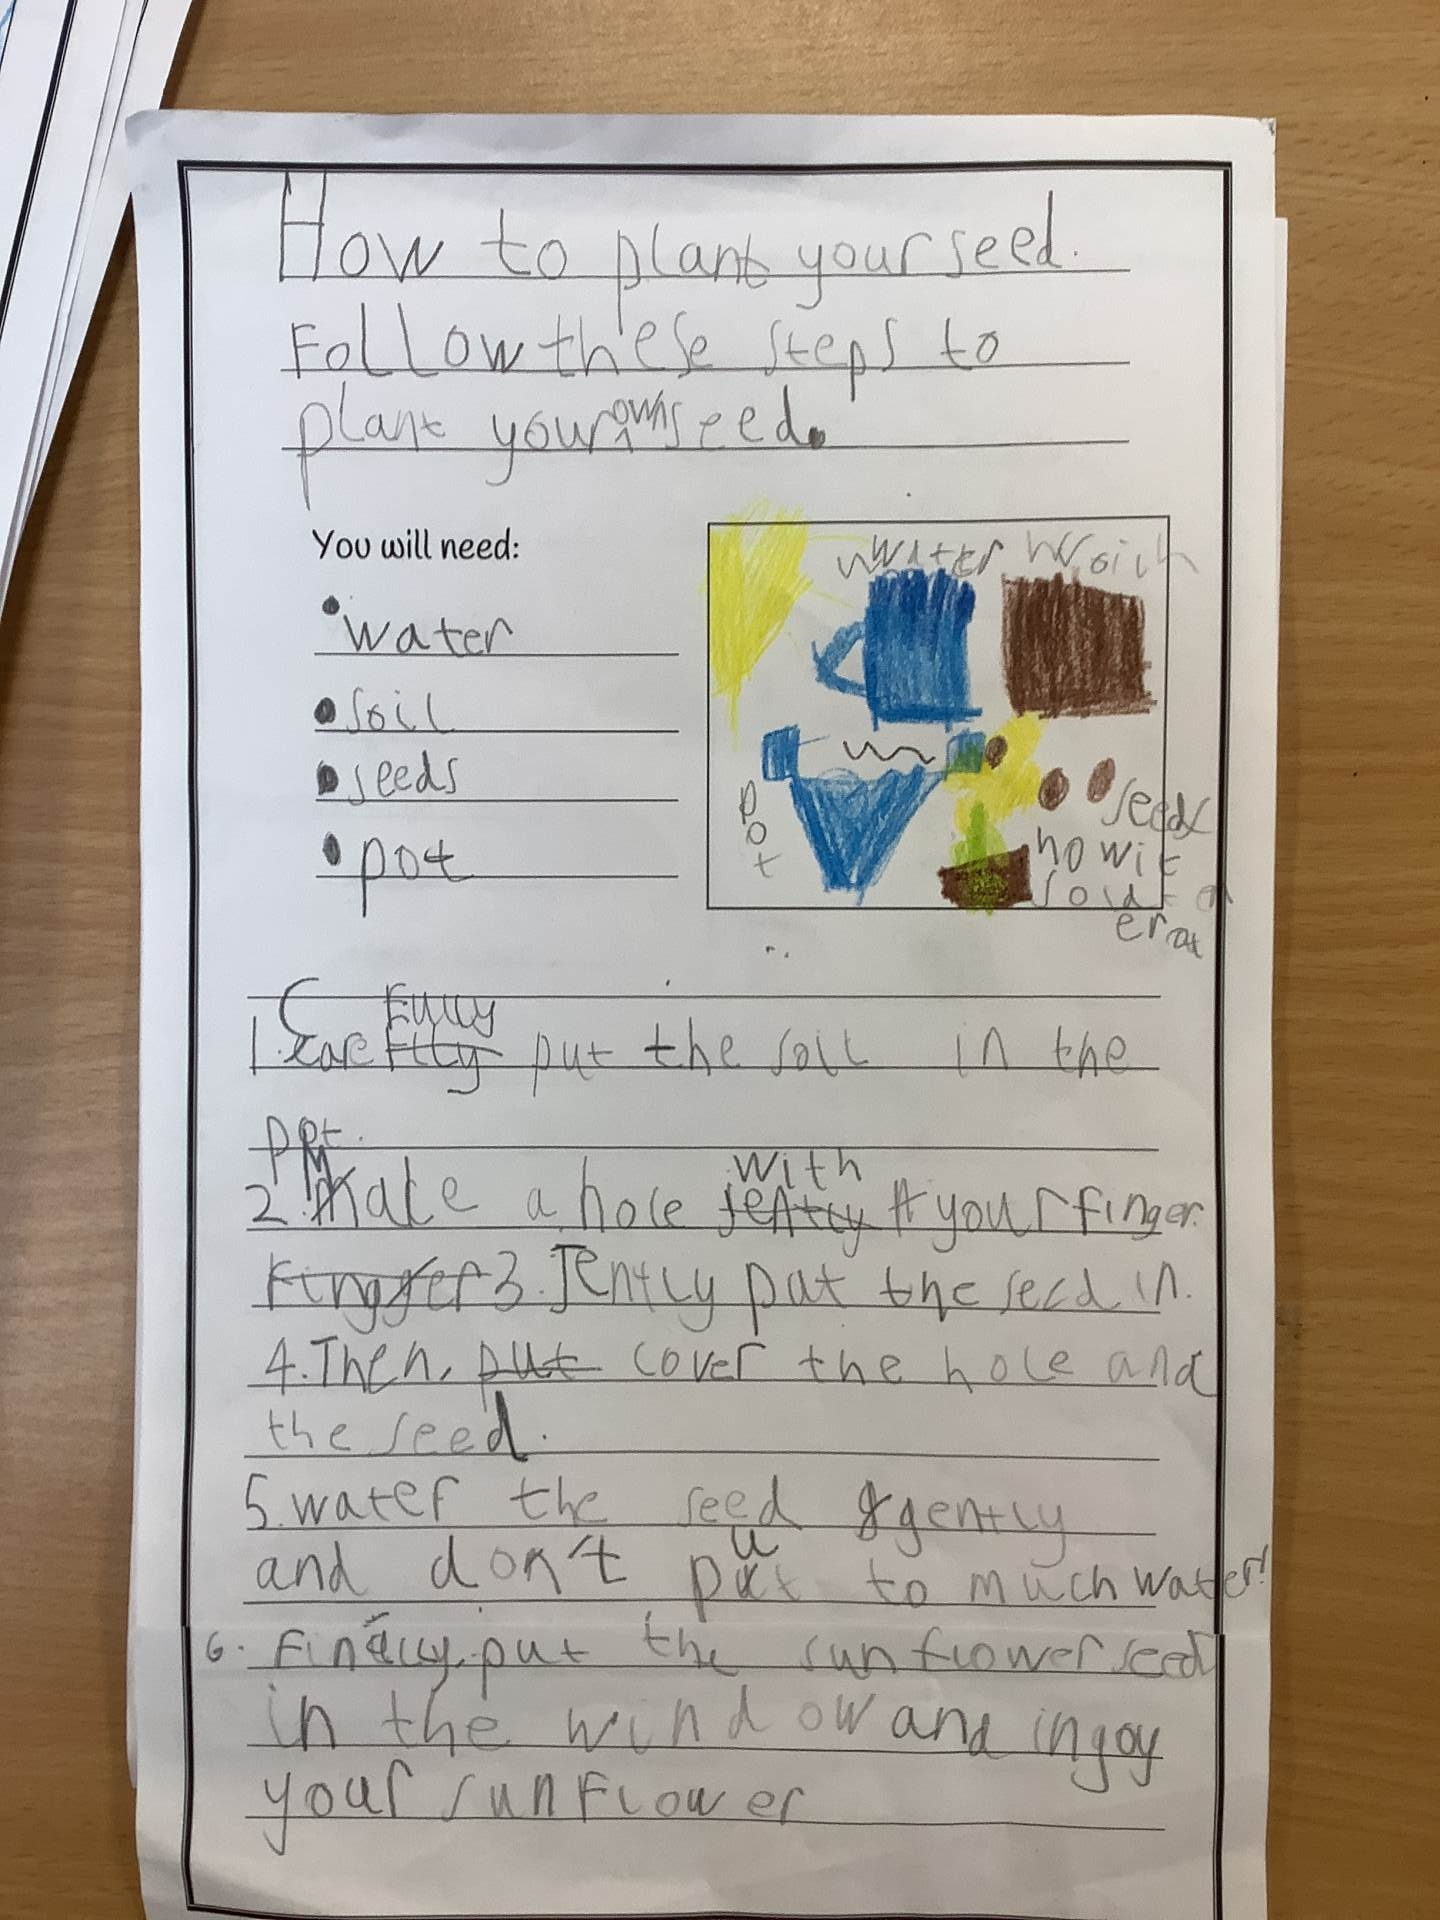 How to plant your seed.
Follow these steps to
plant your own seed.
You will need:
• water
• soil
• seeds
• pot
water
pot
seeds
how it
1. Carefully put the soil in the
pot.
2. Make a hole with your finger.
3. Jently put the seed in.
4. Then, put cover the hole and
the seed.
5. water the seed gently
and don't put to much water!
6. Finally, put the sunflower seed
in the window and ingoy
your sunflower